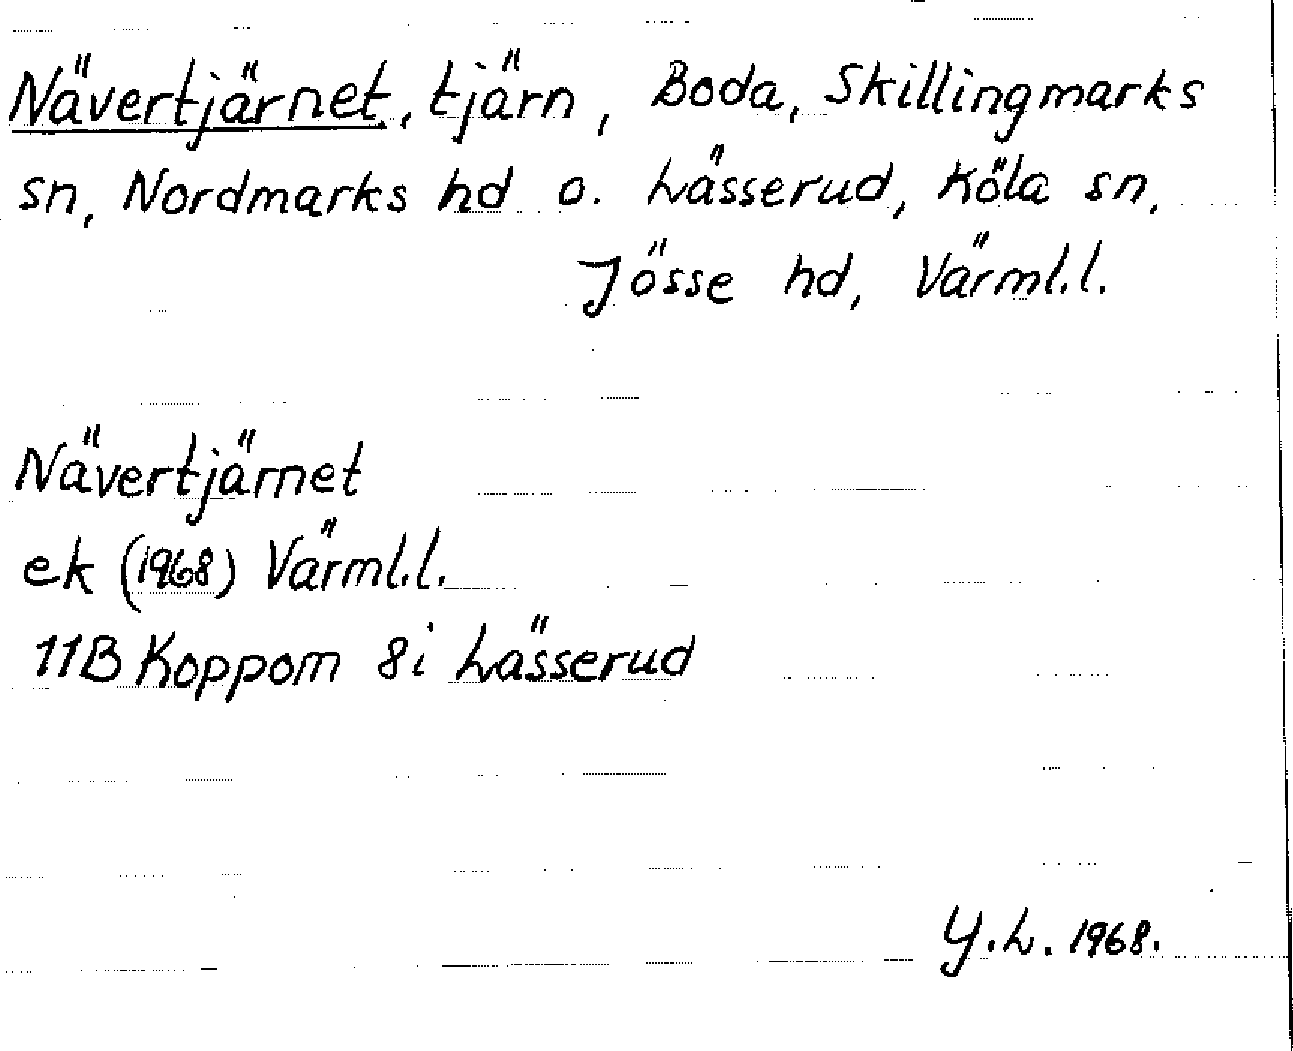 Nävertjärnet, tjärn, Boda, Skillingmarks
sn, Nordmarks hd o. Lässerud, Köla sn,
Jösse hd, Värml.l.
Nävertjärnet
ek (1968) Värml.l.
11B Koppom 8i Lässerud
Y.L. 1968.